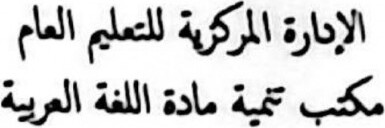 الإدارة المركزية للتعليم العام
مكتب تنمية مادة اللغة العربية